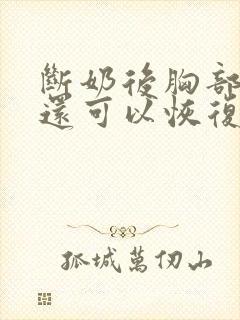 斷奶後胸部
還可以恢復
孤城萬仞山